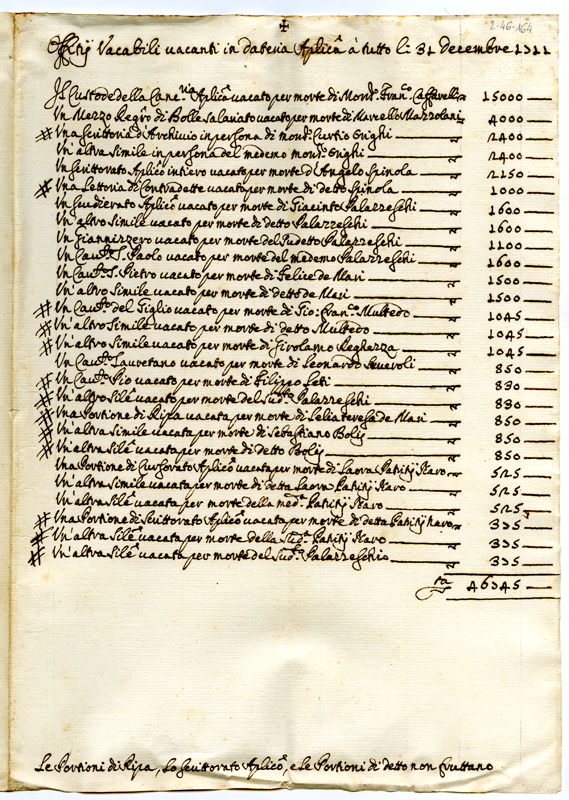 2-46-164
✠
Offitij Vacabili vacanti in dataria Aplicā à tutto li 31 decembre 1711
Il Custode della Canc.ria Aplicā vacato per morte di Mons.r Fran.co Caffarelli 15000
Un Mezzo Reg.ro di Bolle salariato vacato per morte di Marcello Mazzolani 4000
# Una Scrittoria d'Archivio in persona di mons.r Curtio Orighi 2400
Un'altra simile in persona del medemo mons.r Orighi 2400
Un Scrittorato Aplicō intiero vacato per morte d'Angelo Spinola 2150
# Una Lettoria di Contradette vacato per morte di detto Spinola 1000
Un Scudierato Aplicō vacato per morte di Giacinto Palazzeschi 1600
Un'altro simile vacato per morte di detto Palazzeschi 1600
Un Giannizzero vacato per morte del sudetto Palazzeschi 1100
Un Cau.to S. Paolo vacato per morte del medemo Palazzeschi 1600
Un Cau.to S. Pietro vacato per morte di Felice de Mari 1500
Un'altro simile vacato per morte di detto de Mari 1500
# Un Cau.to del Giglio vacato per morte di Gio: Fran.co Multedo 1045
# Un'altro Simile vacato per morte di detto Multedo 1045
# Un'altro Simile vacato per morte di Girolamo Reghezza 1045
Un Cau.to Lauretano vacato per morte di Leonardo Severoli 850
# Un Cau.to Pio vacato per morte di Filippo Leti 830
# Un'altro Silē vacato per morte del sud.o Palazzeschi 830
# Una Portione di Ripa vacata per morte di Lelia Teresa de Mari 850
# Un'altra simile vacata per morte di Sebastiano Bolis 850
# Un'altra silē vacata per morte di detto Bolis 850
Una Portione di Cursorato Aplicō vacata per morte di Laora Patritij Naro 525
Un'altra simile vacata per morte di detta Laora Patritij Naro 525
Un'altra silē vacata per morte della med.a Patritij Naro 525
# Una Portione di Scrittorato Aplicō vacata per morte di detta Patritij Naro 335
# Un'altra silē vacata per morte della sud.a Patritij Naro 335
# Un'altra silē vacata per morte del sud.o Palazzeschi 335
46345
Le Portioni di Ripa, Lo Scrittorato Aplicō, e le Portioni di detto non fruttano